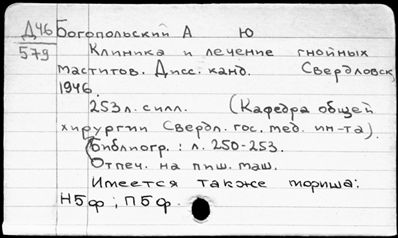 Д46 Богопольский А Ю
579 Клиника и лечение гнойных
маститов. Дисс. канд. Свердловск,
1946.
253 л. с илл. (Кафедра общей
хирургии Свердл. гос. мед. ин-та).
Библиогр.: л. 250-253.
Отпеч. на пиш. маш.
Имеется также в:
НБф; ПБф.